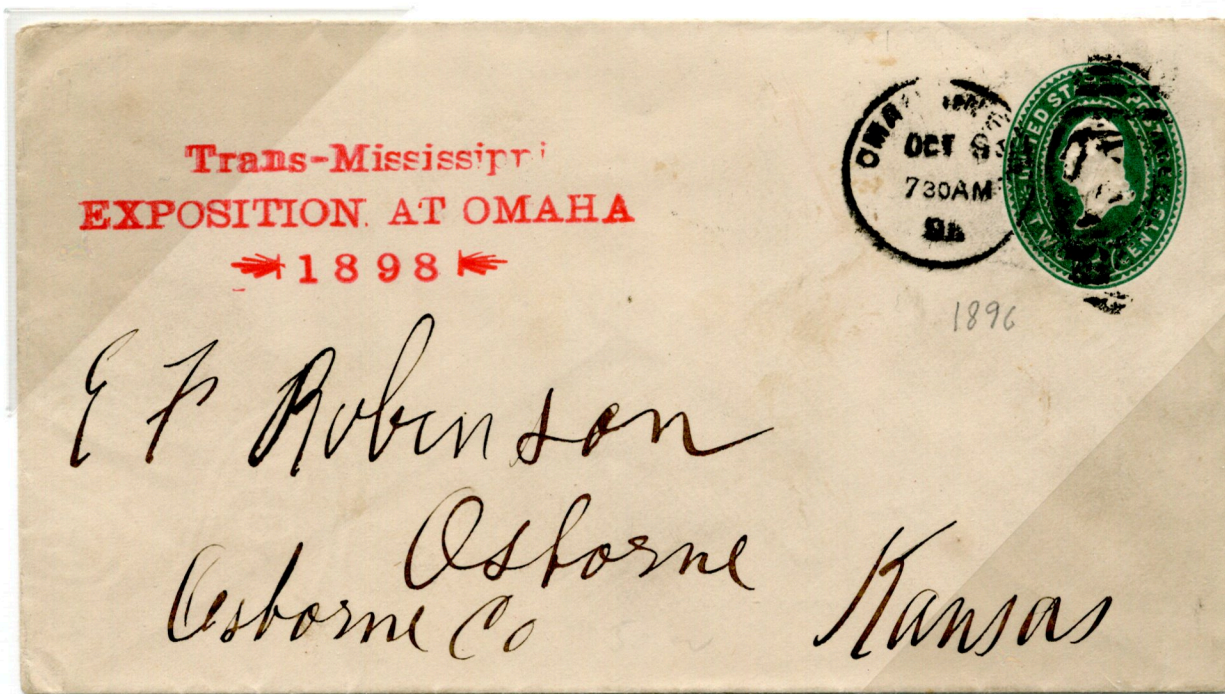 Trans-Mississippi
EXPOSITION. AT OMAHA
1898
OMAHA
OCT
730AM
UNITED STATES POSTAGE
TWO CENTS
1896
E F Robinson
Osborne
Osborne Co
Kansas